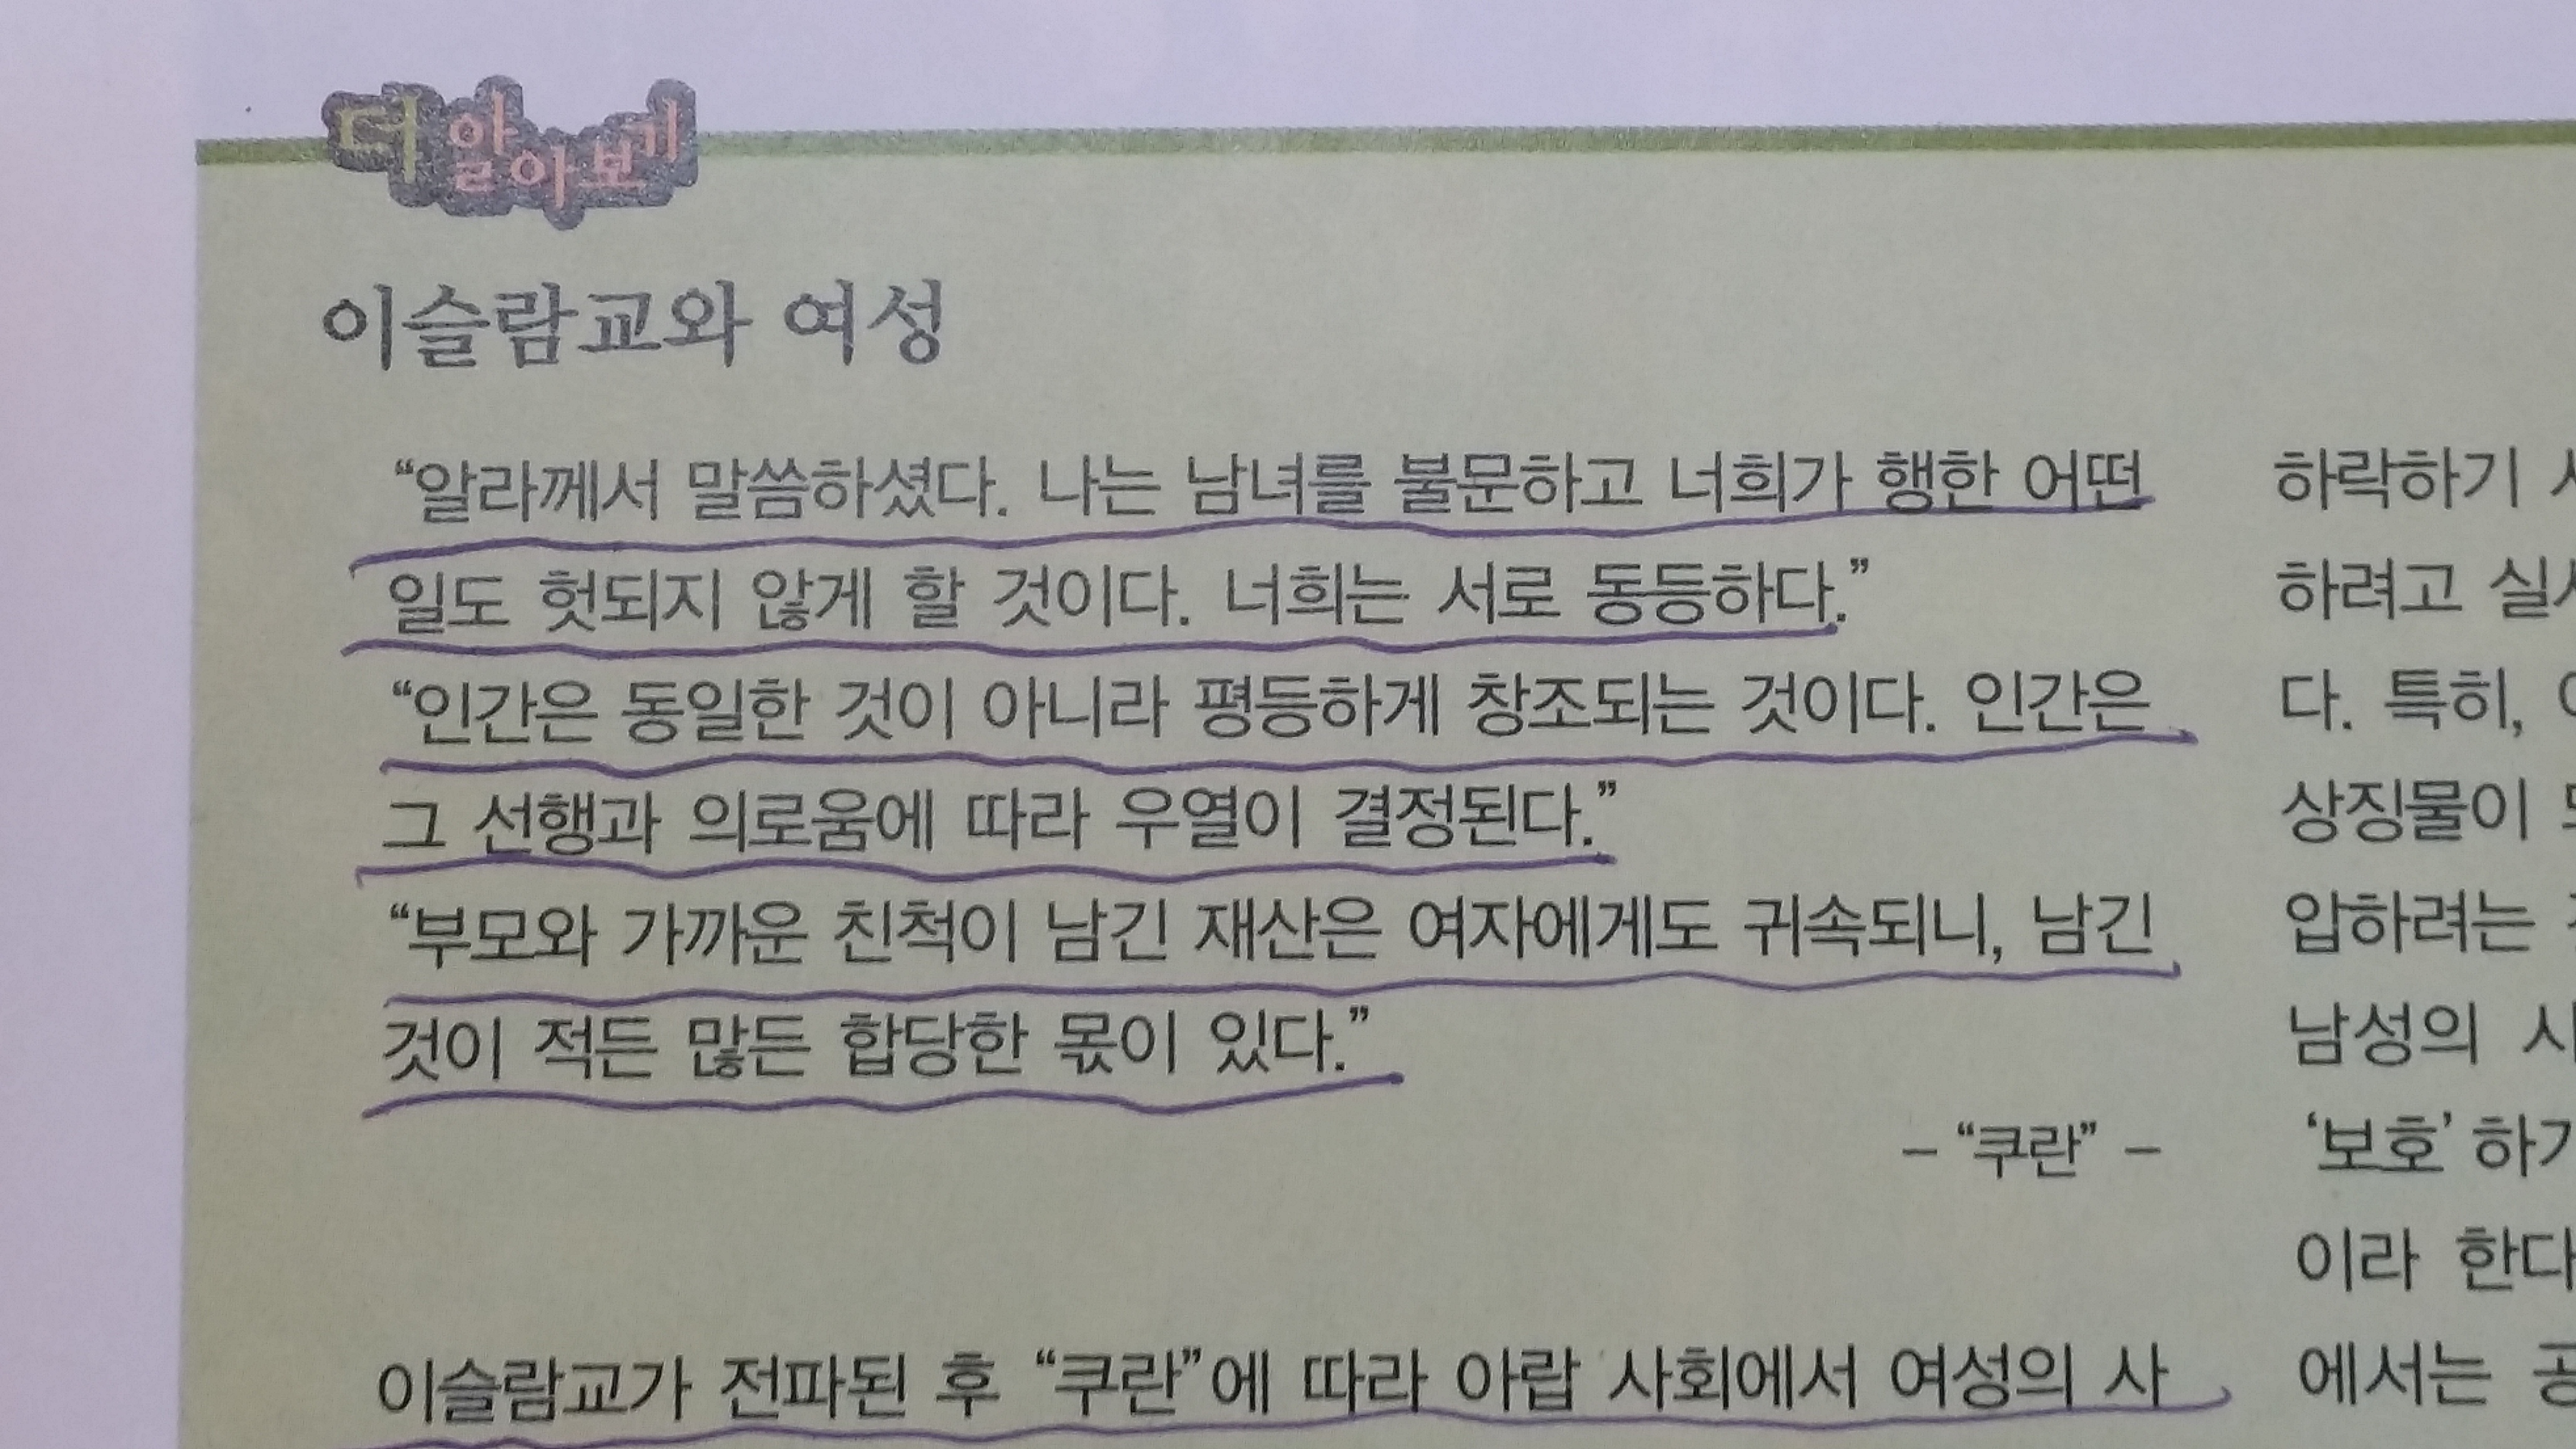 더 알아보기
이슬람교와 여성
“알라께서 말씀하셨다. 나는 남녀를 불문하고 너희가 행한 어떤
일도 헛되지 않게 할 것이다. 너희는 서로 동등하다.”
“인간은 동일한 것이 아니라 평등하게 창조되는 것이다. 인간은
그 선행과 의로움에 따라 우열이 결정된다.”
“부모와 가까운 친척이 남긴 재산은 여자에게도 귀속되니, 남긴
것이 적든 많든 합당한 몫이 있다.”
– “쿠란” –
이슬람교가 전파된 후 “쿠란”에 따라 아랍 사회에서 여성의 사
하락하기
하려고
다. 특히,
상징물이
압하려는
남성의
‘보호’ 하기
이라 한다
에서는